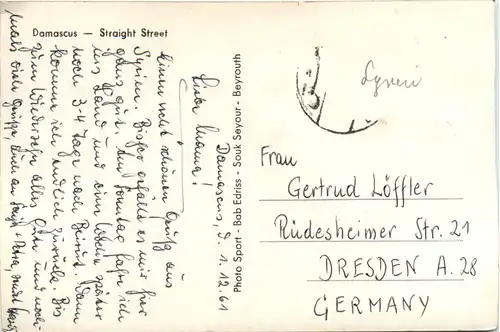 Damascus — Straight Street
Damascus, d. 1.12.61
Liebe Mama!
einen recht schönen Gruß aus
Syrien. Bisher gefällt es mir hier
ganz gut. Am Sonntag fahre ich
ins Land und eine Woche später
noch 3-4 Tage nach Beirut. Dann
komme ich endlich zurück. Bis
zum Wiedersehn alles Gute und noch-
mals viele Grüße, auch an
Photo Sport - Bab Edriss - Souk Seyour - Beyrouth
Syrien
Frau
Gertrud Löffler
Rüdesheimer Str. 21
DRESDEN A. 28
GERMANY